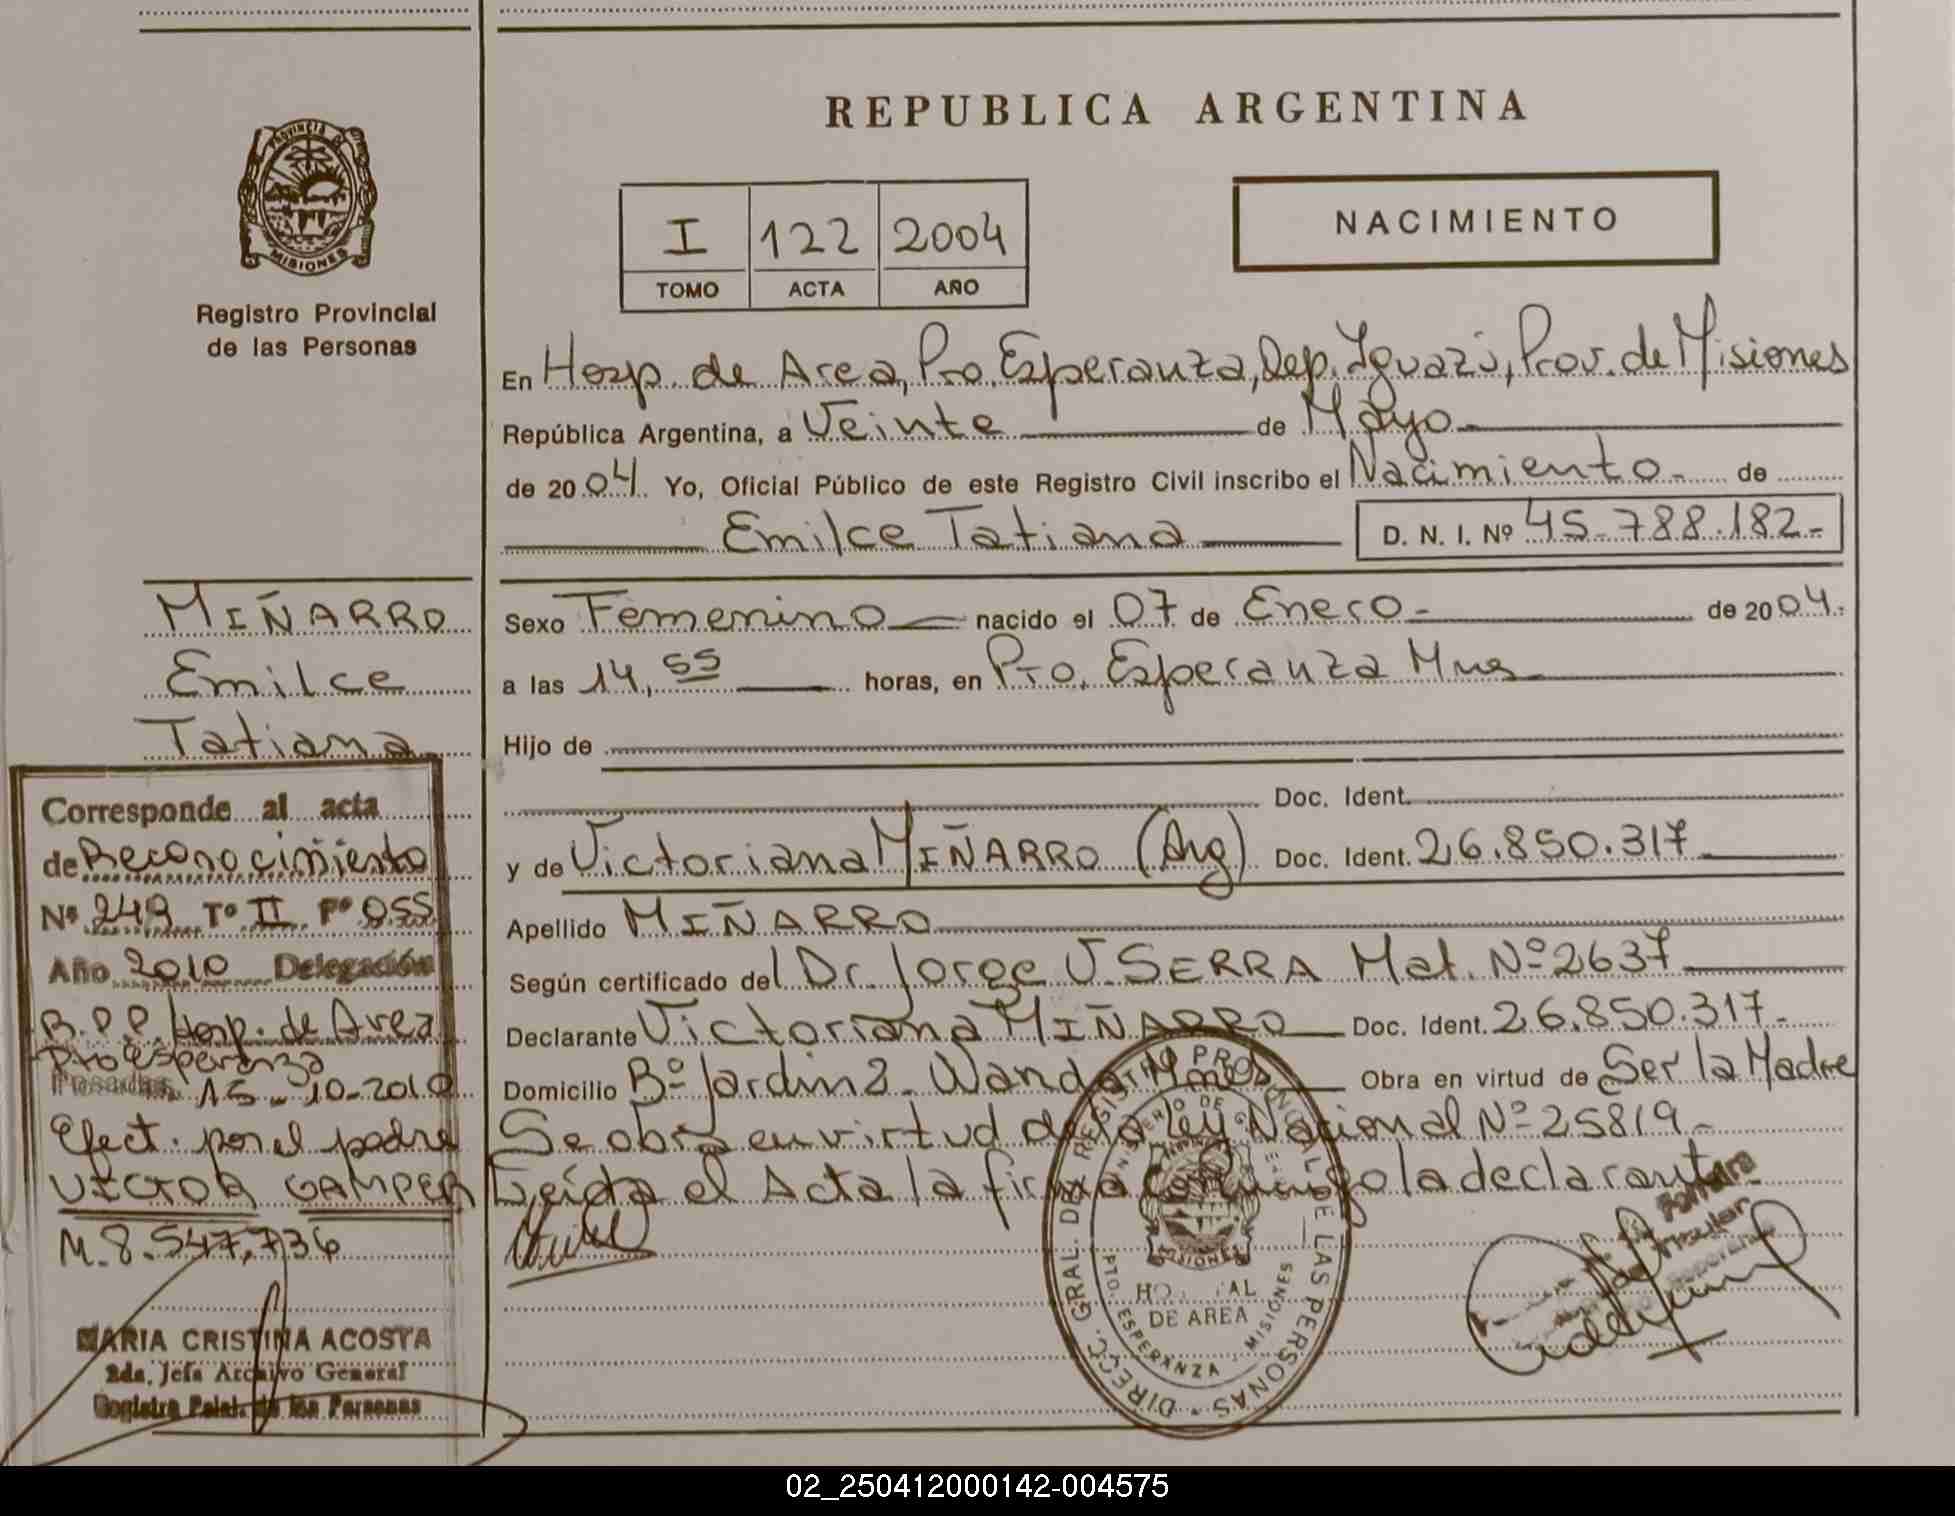 REPUBLICA ARGENTINA
PROVINCIA DE
MISIONES
Registro Provincial
de las Personas
I 122 2004
TOMO ACTA AÑO
NACIMIENTO
En Hosp. de Area, Pto. Esperanza, Dep. Iguazú, Prov. de Misiones
República Argentina, a Veinte de Mayo
de 2004. Yo, Oficial Público de este Registro Civil inscribo el Nacimiento.- de
Emilce Tatiana D. N. I. Nº 45.788.182.-
MIÑARRO
Emilce
Tatiana
Sexo Femenino nacido el 07 de Enero.- de 2004.-
a las 14,55 horas, en Pto. Esperanza Mnes
Hijo de
Doc. Ident.
y de Victoriana MIÑARRO (Arg) Doc. Ident. 26.850.317
Apellido MIÑARRO
Según certificado del Dr. Jorge V. SERRA Mat. Nº 2637
Declarante Victoriana MIÑARRO Doc. Ident. 26.850.317.-
Domicilio Bº Jardin 2 - Wanda Mnes Obra en virtud de Ser la Madre
Se obra en virtud de la Ley Nacional Nº 25819.-
Leída el Acta la firma conmigo la declarante.
Corresponde al acta
de Reconocimiento
Nº 249 Tº II Fº 055
Año 2010 Delegación
R.P.P. Hosp. de Area
Pto Esperanza
Posadas, 15-10-2010
Efect. por el padre
VICTOR GAMPER
M. 8.547.736
MARIA CRISTINA ACOSTA
2da. Jefa Archivo General
Registro Pcial. de las Personas
DIRECC. GRAL. DEL REGISTRO PROVINCIAL DE LAS PERSONAS
MISIONES
DE AREA
PTO. ESPERANZA - MISIONES
02_250412000142-004575